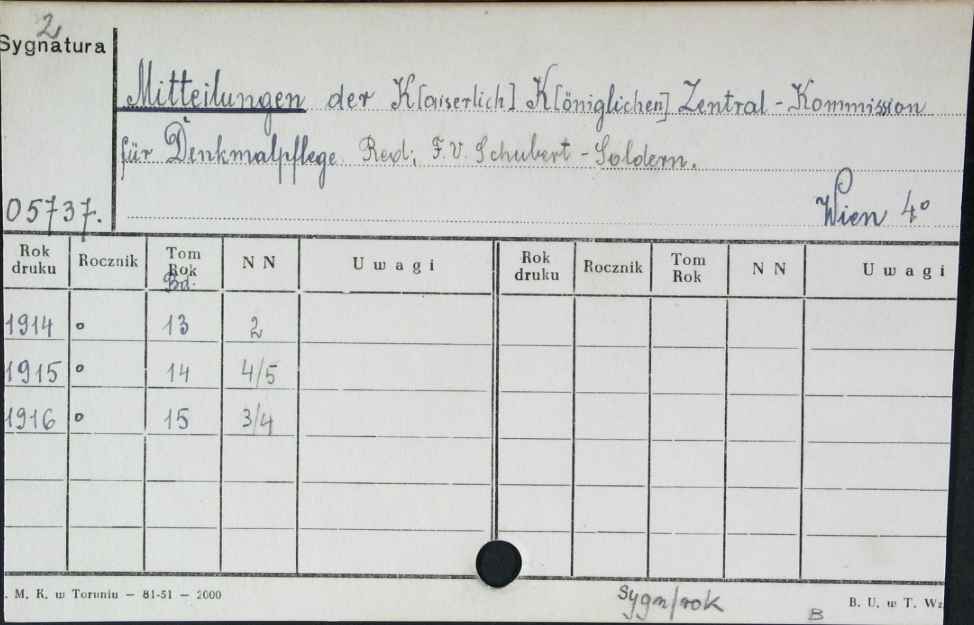 2
Sygnatura
Mitteilungen der K[aiserlich] K[öniglichen] Zentral-Kommission
für Denkmalpflege. Red; F. v. Schubert-Soldern.
05737. Wien 4°
Rok druku Rocznik Tom Rok NN Uwagi Rok druku Rocznik Tom Rok NN Uwagi
Bd.
1914 o 13 2
1915 o 14 4/5
1916 o 15 3/4
. M. K. w Toruniu — 81-51 — 2000
Sygn/rok
B
B. U. w T. Wz